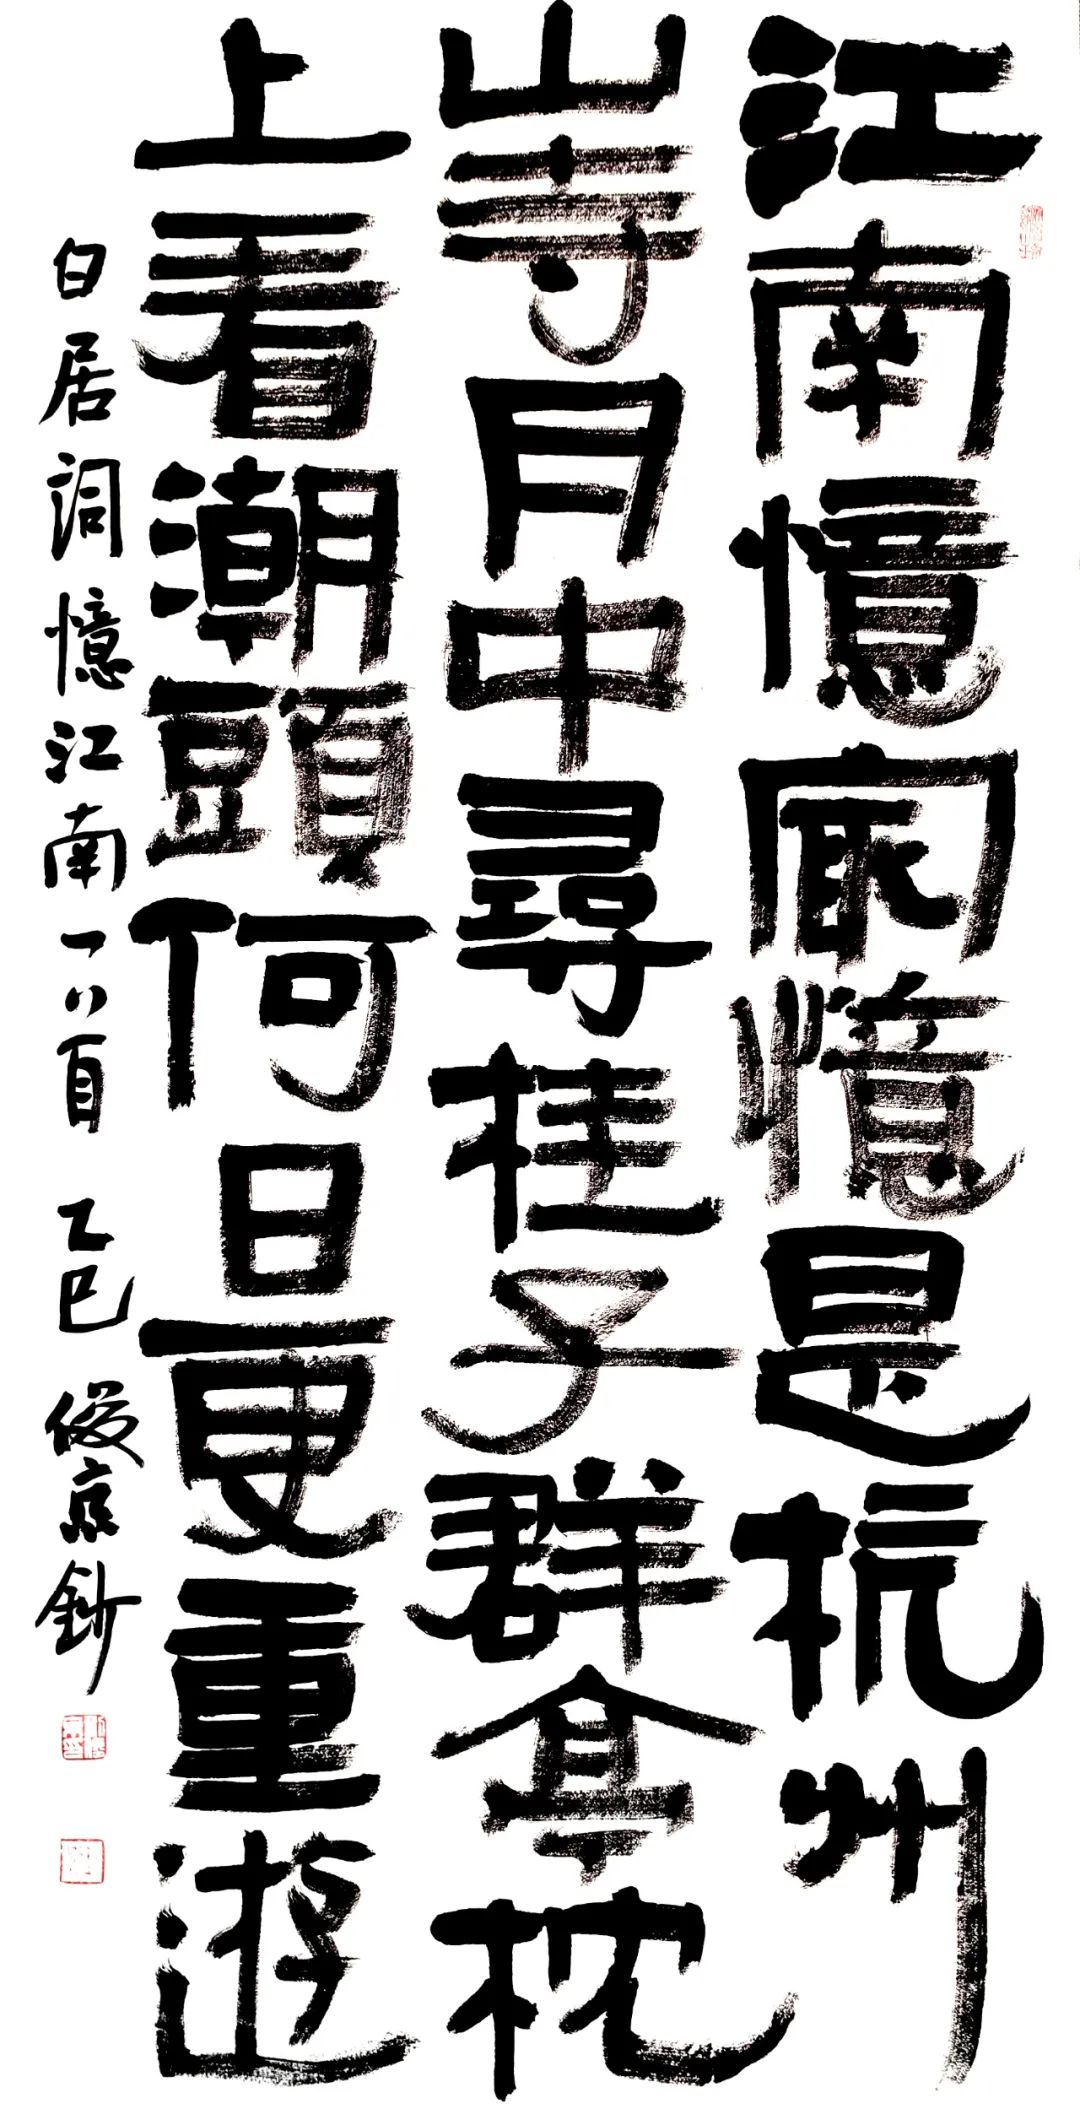 江南憶㝡憶是杭州
山寺月中尋桂子群亭枕
上看潮頭何日更重遊
白居詞憶江南一首 乙巳 俊京鈔